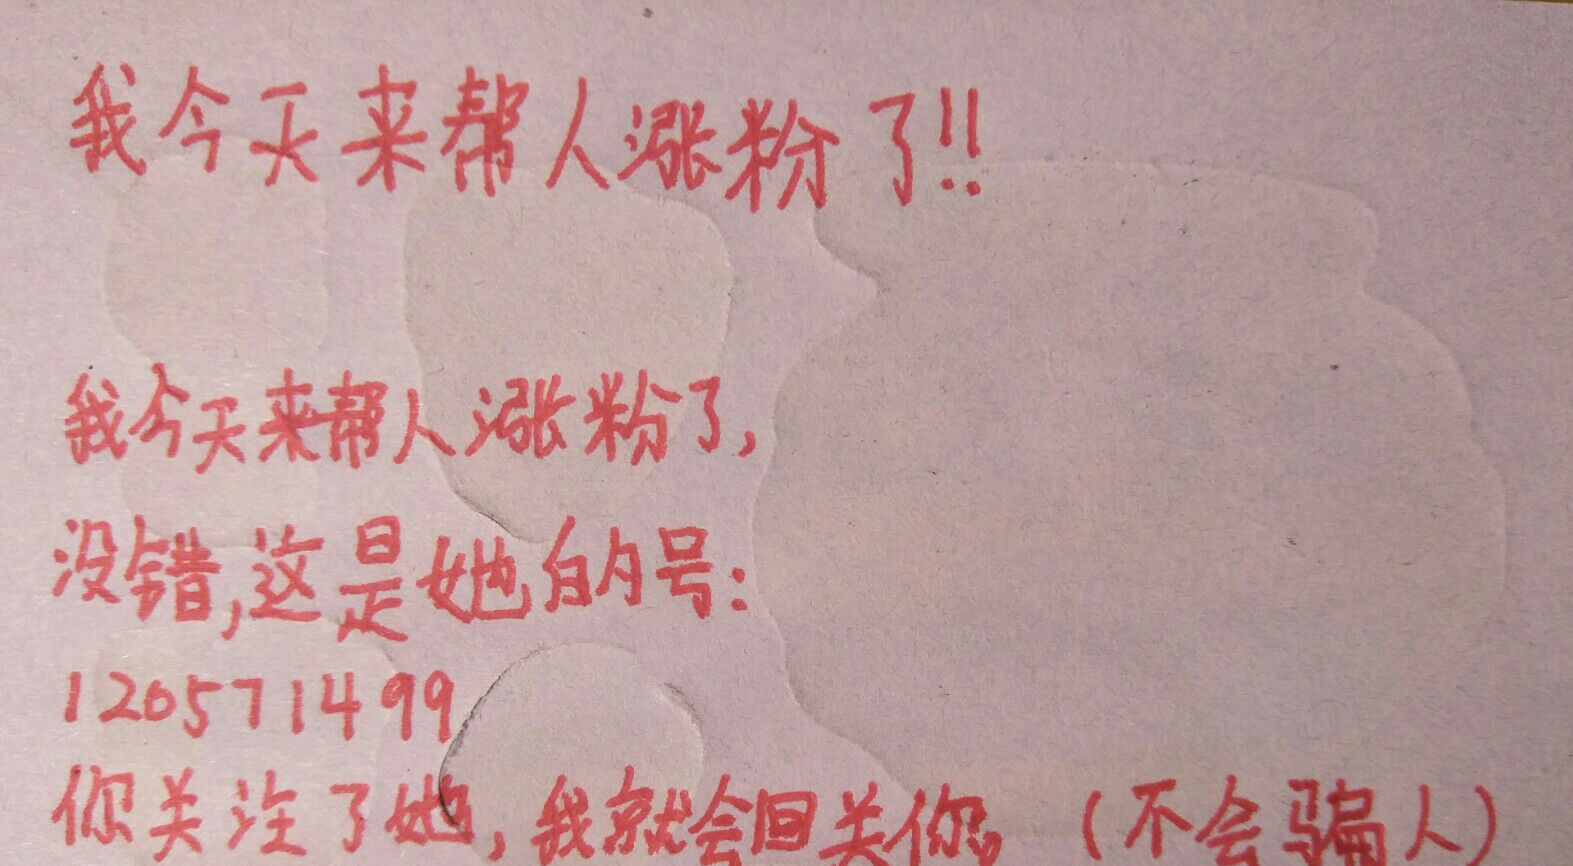 我今天来帮人涨粉了!!
我今天来帮人涨粉了,
没错,这是她的号:
120571499
你关注了她,我就会回关你。(不会骗人)